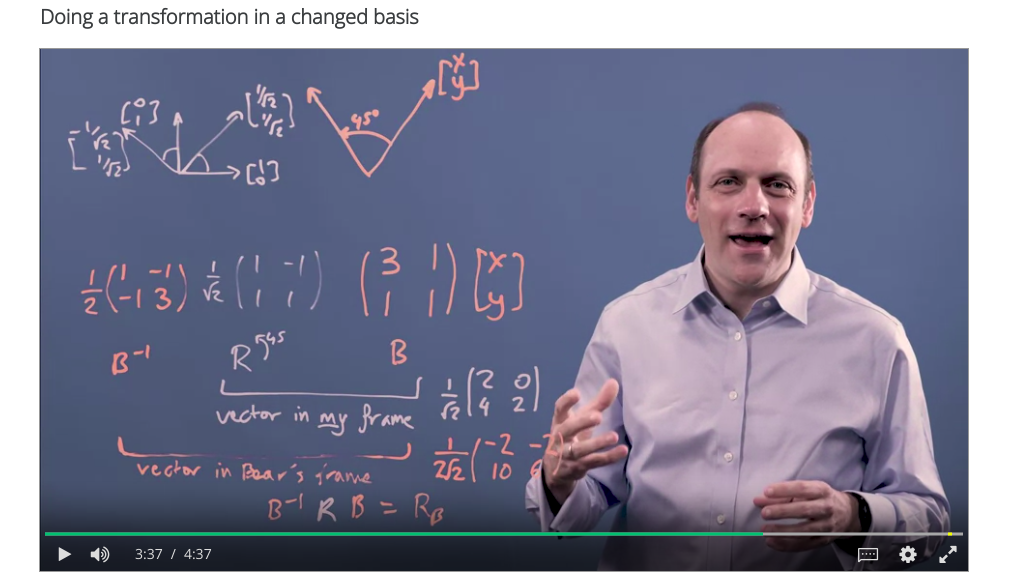 Doing a transformation in a changed basis
[x y]
45°
[0 1]
[1/√2 1/√2]
[-1/√2 1/√2]
[1 0]
1/2 (1 -1 -1 3) 1/√2 (1 -1 1 1) (3 1 1 1) [x y]
B⁻¹ R 45 B
1/√2 (2 0 4 2)
vector in my frame
1/2√2 (-2 -2 10
vector in Bear's frame
B⁻¹ R B = R_B
3:37 / 4:37